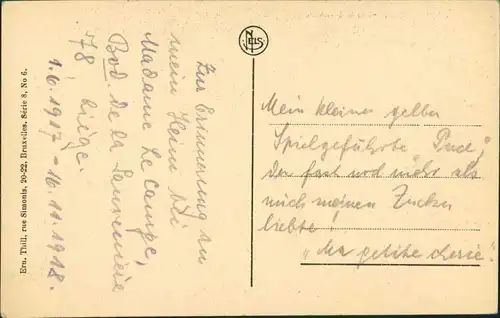 Zur Erinnerung an
mein Heim bei
Madame Le Campe,
Bod. de la Sauvenière
78 Liège.
1.6.1917 - 16.11.1918.
Mein kleiner gelber
Spielgefährte "Puce",
der fast noch mehr als
mich meinen Zucker
liebte
"Ma petite cherie".
NELS
Ern. Thill, rue Simonis, 20-22, Bruxelles. Série 8, No 6.